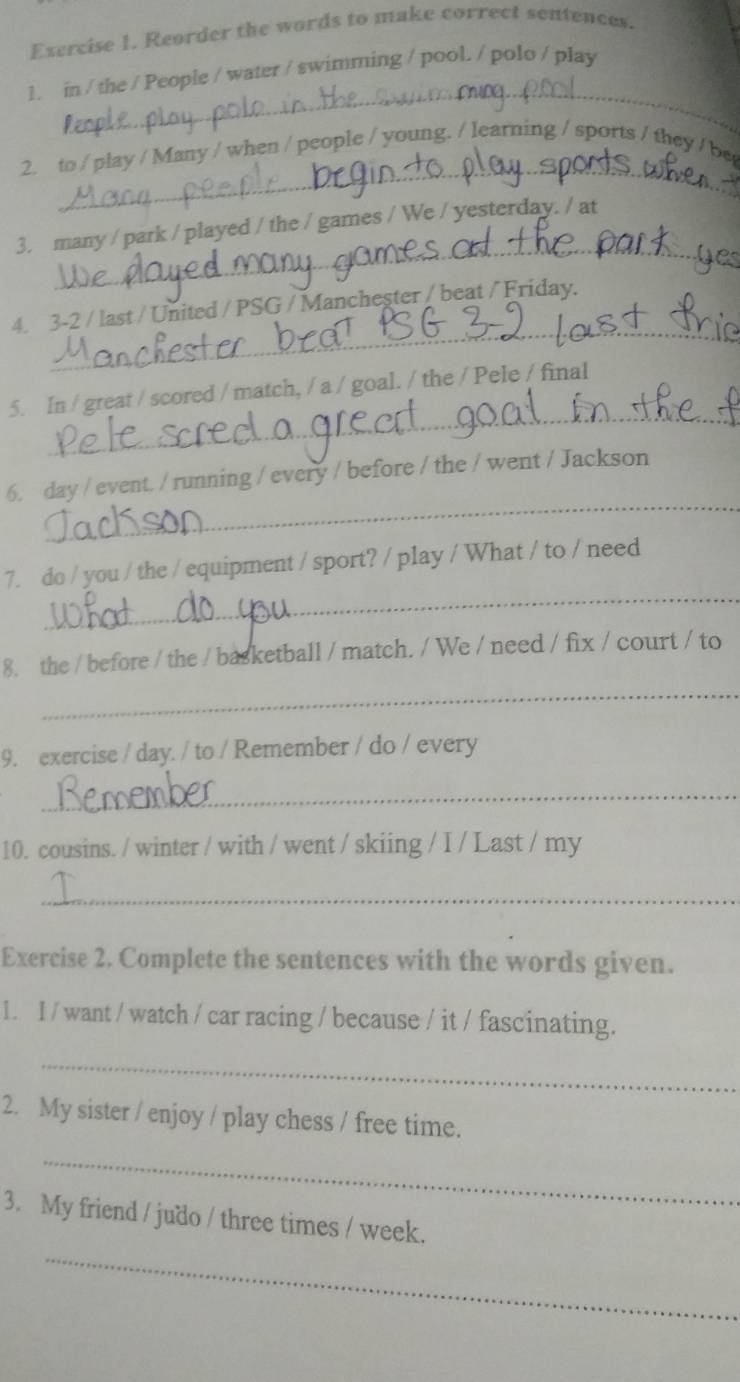 Exercise 1. Reorder the words to make correct sentences.
1. in / the / People / water / swimming / pool. / polo / play
People play polo in the swimming pool
2. to / play / Many / when / people / young. / learning / sports / they / beg
Many people begin to play sports when
3. many / park / played / the / games / We / yesterday. / at
We played many games at the park yes
4. 3-2 / last / United / PSG / Manchester / beat / Friday.
Manchester beat PSG 3-2 last frid
5. In / great / scored / match, / a / goal. / the / Pele / final
Pele scred a great goal in the f
6. day / event. / running / every / before / the / went / Jackson
Jackson
7. do / you / the / equipment / sport? / play / What / to / need
What do you
8. the / before / the / basketball / match. / We / need / fix / court / to
9. exercise / day. / to / Remember / do / every
Remember
10. cousins. / winter / with / went / skiing / I / Last / my
I
Exercise 2. Complete the sentences with the words given.
1. I / want / watch / car racing / because / it / fascinating.
2. My sister / enjoy / play chess / free time.
3. My friend / judo / three times / week.